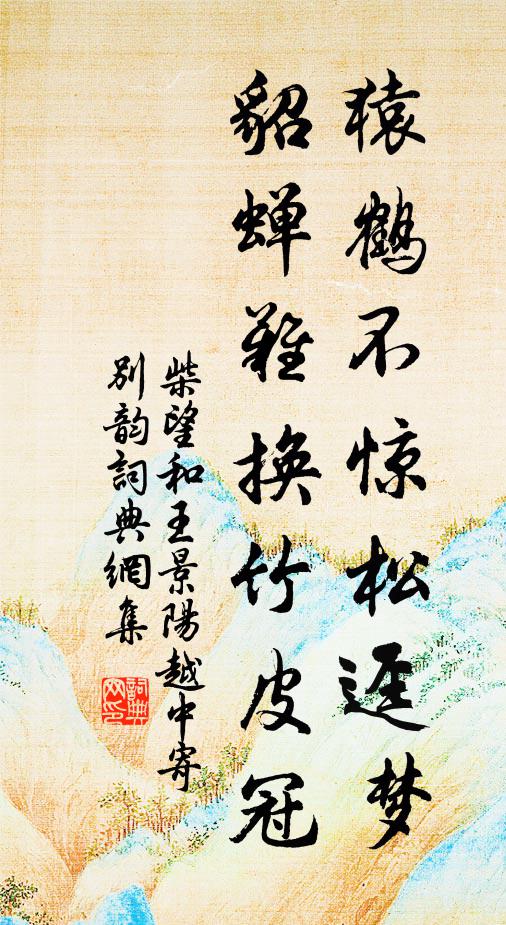 猿鹤不惊松迳梦
貂蝉难换竹皮冠
柴望和王景陽越中寄
别韵詞典網集
詞典
网印